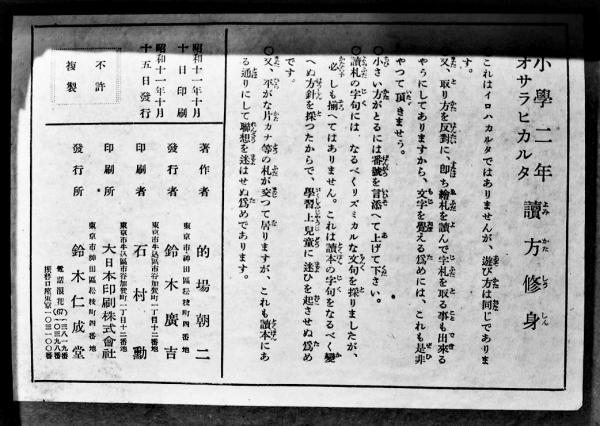 小學二年 讀方修身
オサラヒカルタ
○これはイロハカルタではありませんが、遊び方は同じでありま
す。
又、取り方を反對に、卽ち繪札を讀んで字札を取る事も出來る
やうにしてありますから、文字を覺える爲めには、これも是非
やつて頂きませう。
○小さい方がとるには番號を言添へて上げて下さい。
○讀札の字句には、なるべくリズミカルな文句を採りましたが、
必しも揃へてはありません。これは讀本の字句をなるべく變
へぬ方針を採つたからで、學習上兒童に迷ひを起させぬ爲め
です。
○又、平がな片カナ等の札が交つて居りますが、これも讀本にあ
る通りにして聯想を迷はせぬ爲めであります。
昭和十一年十月
十日印刷
昭和十一年十月
十五日發行
不許
複製
著作者 的場朝二
東京市神田區松枝町四番地
發行者 鈴木廣吉
東京市牛込區市谷加賀町一丁目十二番地
印刷者 石村勳
東京市牛込區市谷加賀町一丁目十二番地
印刷所 大日本印刷株式會社
東京市神田區松枝町四番地
發行所 鈴木仁成堂
電話浪花(67)
一三八一九番
一〇三九八番
振替口座東京一〇三一〇〇番